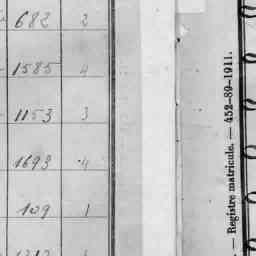 682 2
1585 4
1153 3
1693 4
109 1
— Registre matricule. — 452-89-1911.